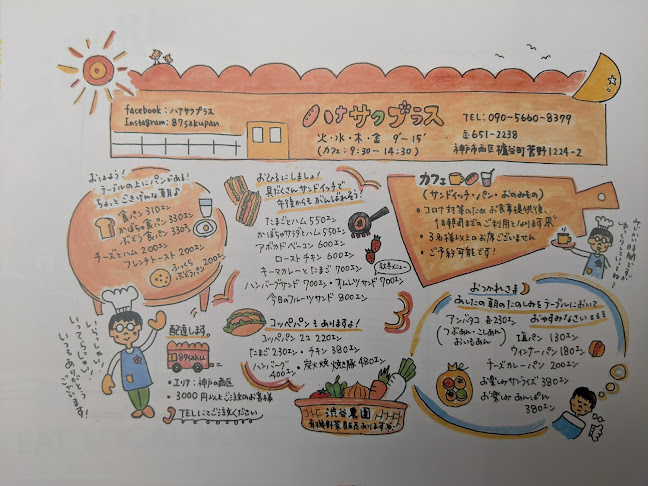 facebook：ハケサクプラス
Instagram：87sakupan
ハケサクプラス
火・水・木・金 9〜15
（カフェ：9:30〜14:30）
TEL：090-5660-8379
〒651-2238
神戸市西区櫨谷町菅野1224-2
おはよう！
テーブルの上にパンがある！
ちょっとごきげんな朝♪
食パン 310エン
かぼちゃ食パン 330エン
ぶどう食パン 330エン
チーズとハム 200エン
フレンチトースト 200エン
ふっくら
ぶどうパン 200エン
おひるにしましょ！
具だくさんサンドイッチで
午後からもがんばれそう！
たまごとハム 550エン
かぼちゃサラダとハム 550エン
アボカドベーコン 600エン
ローストチキン 600エン
キーマカレーとたまご 700エン
ハンバーグサンド 700エン・オムレツサンド 700エン
今日のフルーツサンド 800エン
コッペパンもありますよ！
コッペパン プレーン 220エン
たまご 230エン・チキン 380エン
ハンバーグ 400エン・炭火焼き豚 480エン
カフェ
（サンドイッチ・パン・おのみもの）
・コロナ対策のため お食事提供後、
1時間までのご利用となります
・3名様以上のお席ございません
・ご予約可能です！
おつかれさま
あしたの朝のたのしみをテーブルにおいて
おやすみなさい
アンバタコ 各230エン
（つぶあん・こしあん
おいもあん）
塩パン 130エン
ウィンナーパン 180エン
チーズカレーパン 200エン
お楽しみサンライズ 380エン
お楽しみあんぱん
380エン
いらっしゃい！
いってらっしゃい！
いつもありがとう
ございます！
配達します。
87saku
・エリア：神戸市西区
・3000円以上ご注文のお客様
TELにてご注文ください
渋谷農園
有機野菜販売あります